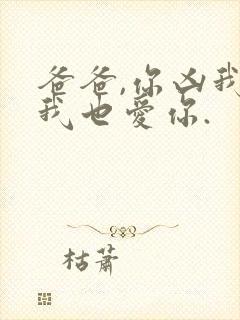 爸爸,你凶我
我也愛你.
枯蕭